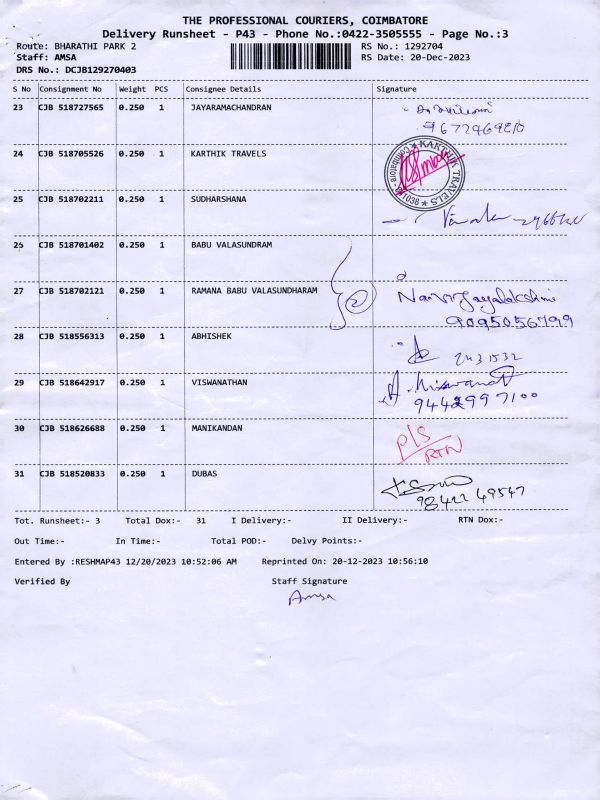 THE PROFESSIONAL COURIERS, COIMBATORE
Delivery Runsheet - P43 - Phone No.:0422-3505555 - Page No.:3
Route: BHARATHI PARK 2 RS No.: 1292704
Staff: AMSA RS Date: 20-Dec-2023
DRS No.: DCJB129270403
S No Consignment No Weight PCS Consignee Details Signature
23 CJB 518727565 0.250 1 JAYARAMACHANDRAN
24 CJB 518705526 0.250 1 KARTHIK TRAVELS
KARTHIK TRAVELS
25 CJB 518702211 0.250 1 SUDHARSHANA
26 CJB 518701402 0.250 1 BABU VALASUNDRAM
2
27 CJB 518702121 0.250 1 RAMANA BABU VALASUNDHARAM
9095056799
28 CJB 518556313 0.250 1 ABHISHEK
2431532
29 CJB 518642917 0.250 1 VISWANATHAN
A. Viswanath
9442997100
30 CJB 518626688 0.250 1 MANIKANDAN
P/S
RTN
31 CJB 518520833 0.250 1 DUBAS
98422 49547
Tot. Runsheet:- 3 Total Dox:- 31 I Delivery:- II Delivery:- RTN Dox:-
Out Time:- In Time:- Total POD:- Delvy Points:-
Entered By :RESHMAP43 12/20/2023 10:52:06 AM Reprinted On: 20-12-2023 10:56:10
Verified By Staff Signature
Amsa